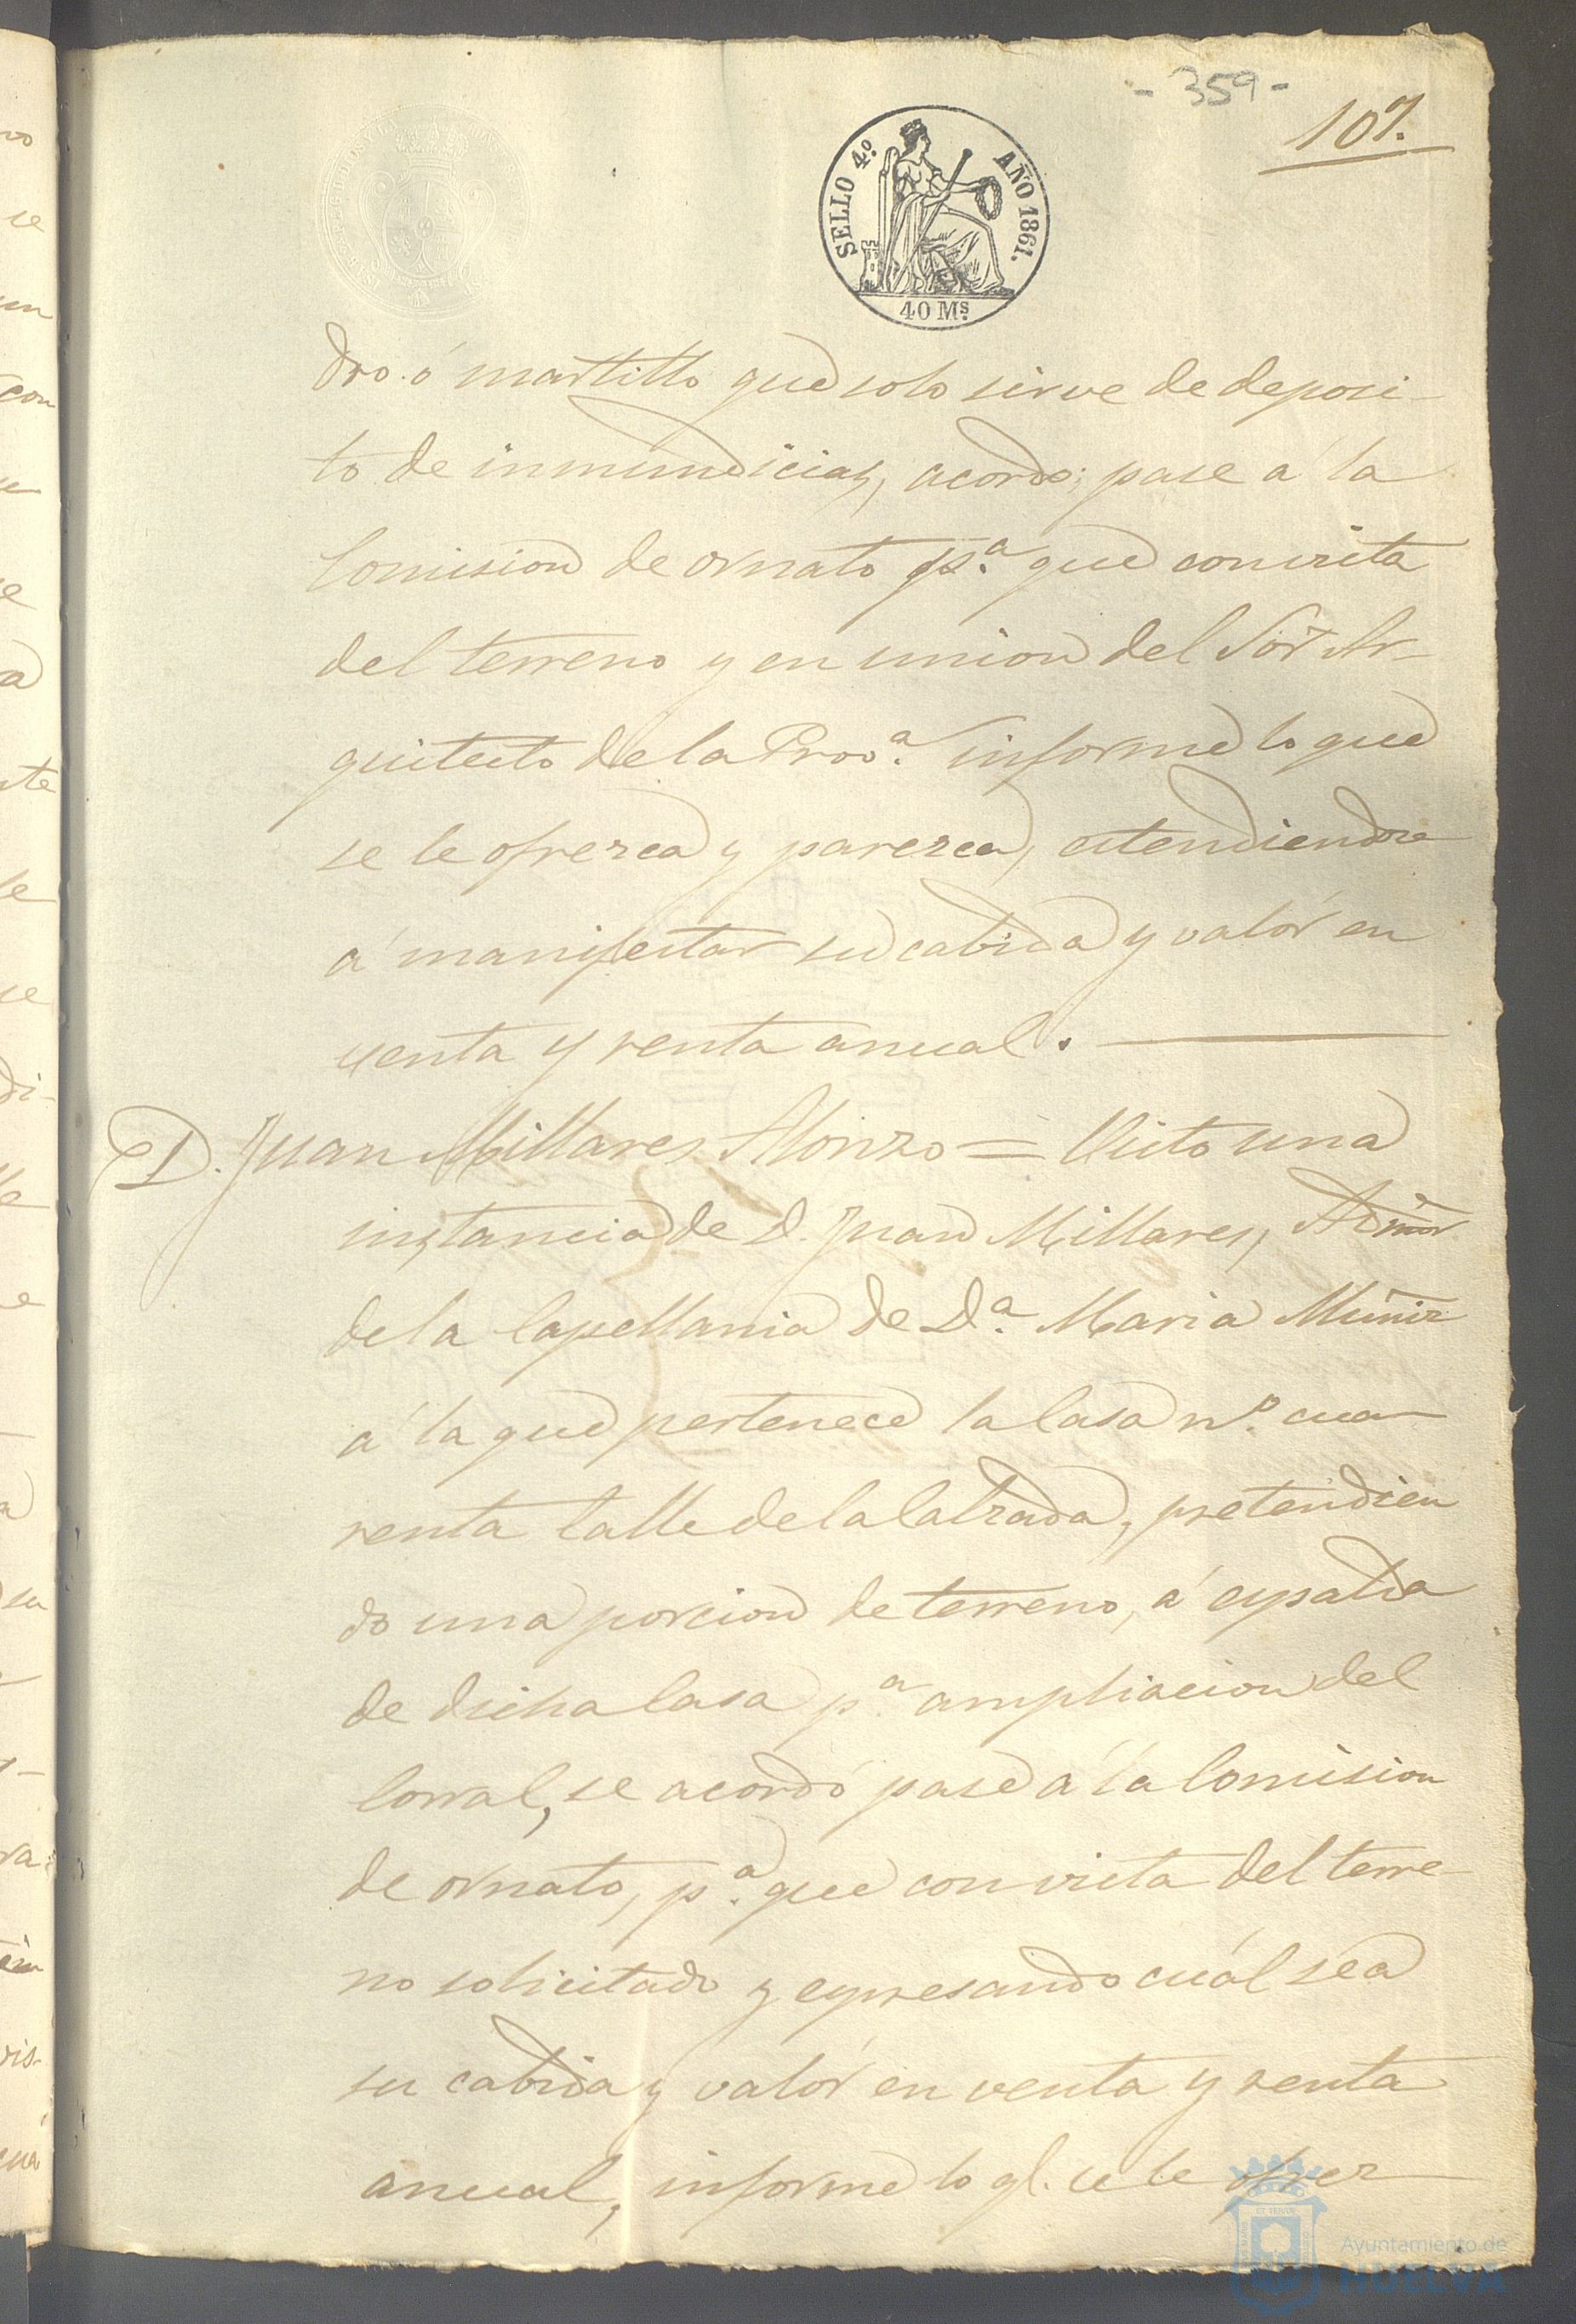 - 359 -
107.
SELLO 4º. AÑO 1861.
40 Mˢ.
dro ó martillo que solo sirve de deposi-
to de inmundicias, acordó; pase á la
Comision de ornato pª. que con vista
del terreno y en union del Sor. Ar-
quitecto de la Provª. informe lo que
se le ofrezca y parezca, estendiendose
á manifestar su cabida y valór en
venta y renta anual. —
D. Juan Millares Alonzo = Visto una
instancia de D. Juan Millares, Admor
de la Capellania de Dª. Maria Muñiz
á la que pertenece la Casa nº. cua-
renta Calle de la Calzada, pretendien
do una porcion de terreno, á espalda
de dicha Casa pª. ampliacion del
Corral, se acordó pase á la Comision
de ornato, pª. que con vista del terre-
no solicitado y espresando cuál sea
su cabida y valór en venta y renta
anual, informe lo ql. se le ofrez
Ayuntamiento de
HUELVA